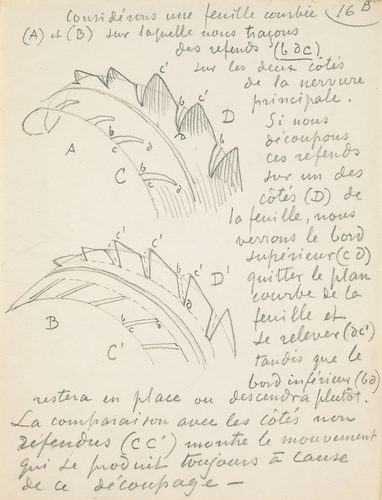 16 B
Considérons une feuille courbée
(A) et (B) sur laquelle nous traçons
des refends (b d c)
sur les deux côtés
de la nervure
principale.
Si nous
découpons
ces refends
sur un des
côtés (D) de
la feuille, nous
verrons le bord
supérieur (c d)
quitter le plan
courbe de la
feuille et
se relever (dc')
tandis que le
bord inférieur (bd)
restera en place ou descendra plutôt.
La comparaison avec les côtés non
refendus (C C') montre le mouvement
qui se produit toujours à cause
de ce découpage —
A
C
D
B
C'
D'
b
c
d
b
c
d
c'
b
c'
b
c'
c'
c'
b
c'
d
b
c
d